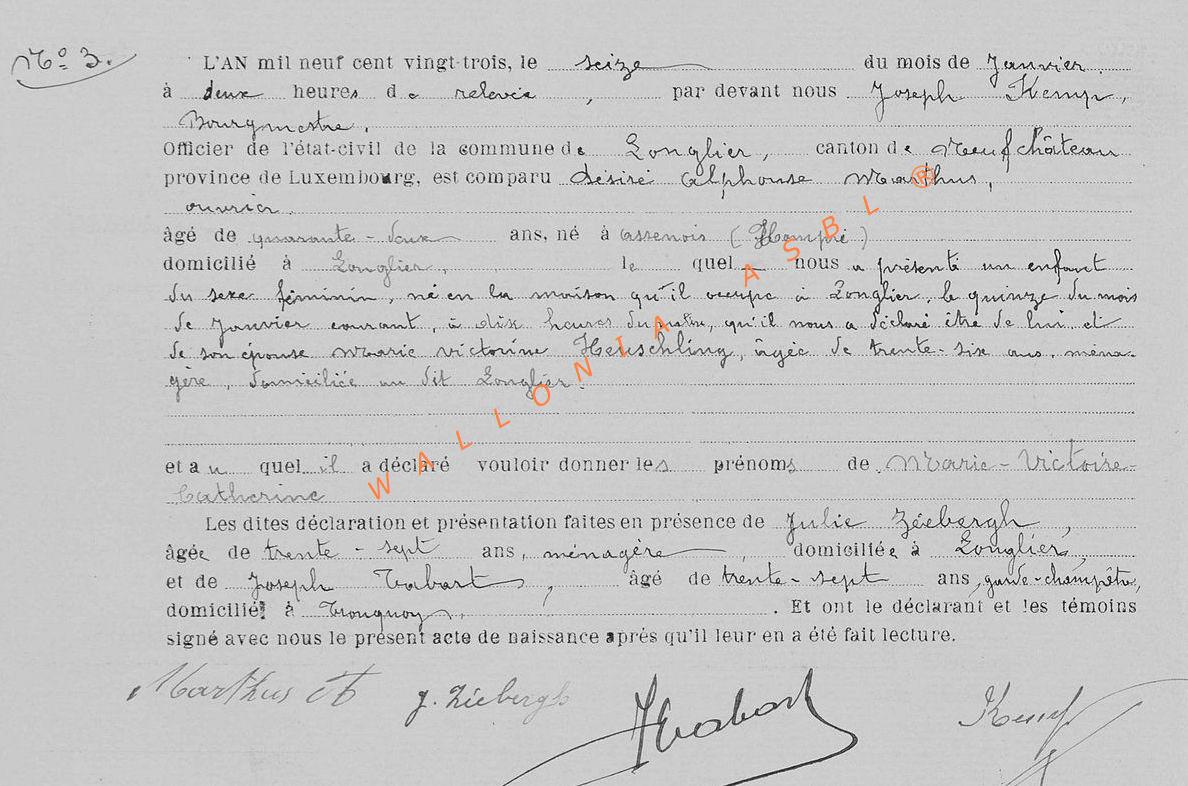 No 3.
L'AN mil neuf cent vingt-trois, le seize du mois de Janvier.
à deux heures de relevée, par devant nous Joseph Kemp,
Bourgmestre,
Officier de l'état-civil de la commune de Longlier, canton de Neufchâteau
province de Luxembourg, est comparu Désiré Alphonse Marthus,
ouvrier.
âgé de quarante-deux ans, né à Assenois (Hompré)
domicilié à Longlier, lequel nous a présenté un enfant
du sexe féminin, né en la maison qu'il occupe à Longlier, le quinze du mois
de Janvier courant, à dix heures du matin, qu'il nous a déclaré être de lui et
de son épouse Marie Victorine Heuschling, âgée de trente-six ans, ména-
gère, domiciliée au dit Longlier.
et au quel il a déclaré vouloir donner les prénoms de Marie-Victoire-
Catherine
Les dites déclaration et présentation faites en présence de Julie Zéebergh,
âgée de trente-sept ans, ménagère, domiciliée à Longlier,
et de Joseph Trabart, âgé de trente-sept ans, garde-champêtre,
domicilié à Tronquoy. Et ont le déclarant et les témoins
signé avec nous le présent acte de naissance après qu'il leur en a été fait lecture.
Marthus J. Ziebergh JTrabart Kemp
WALLONIA ASBL ®